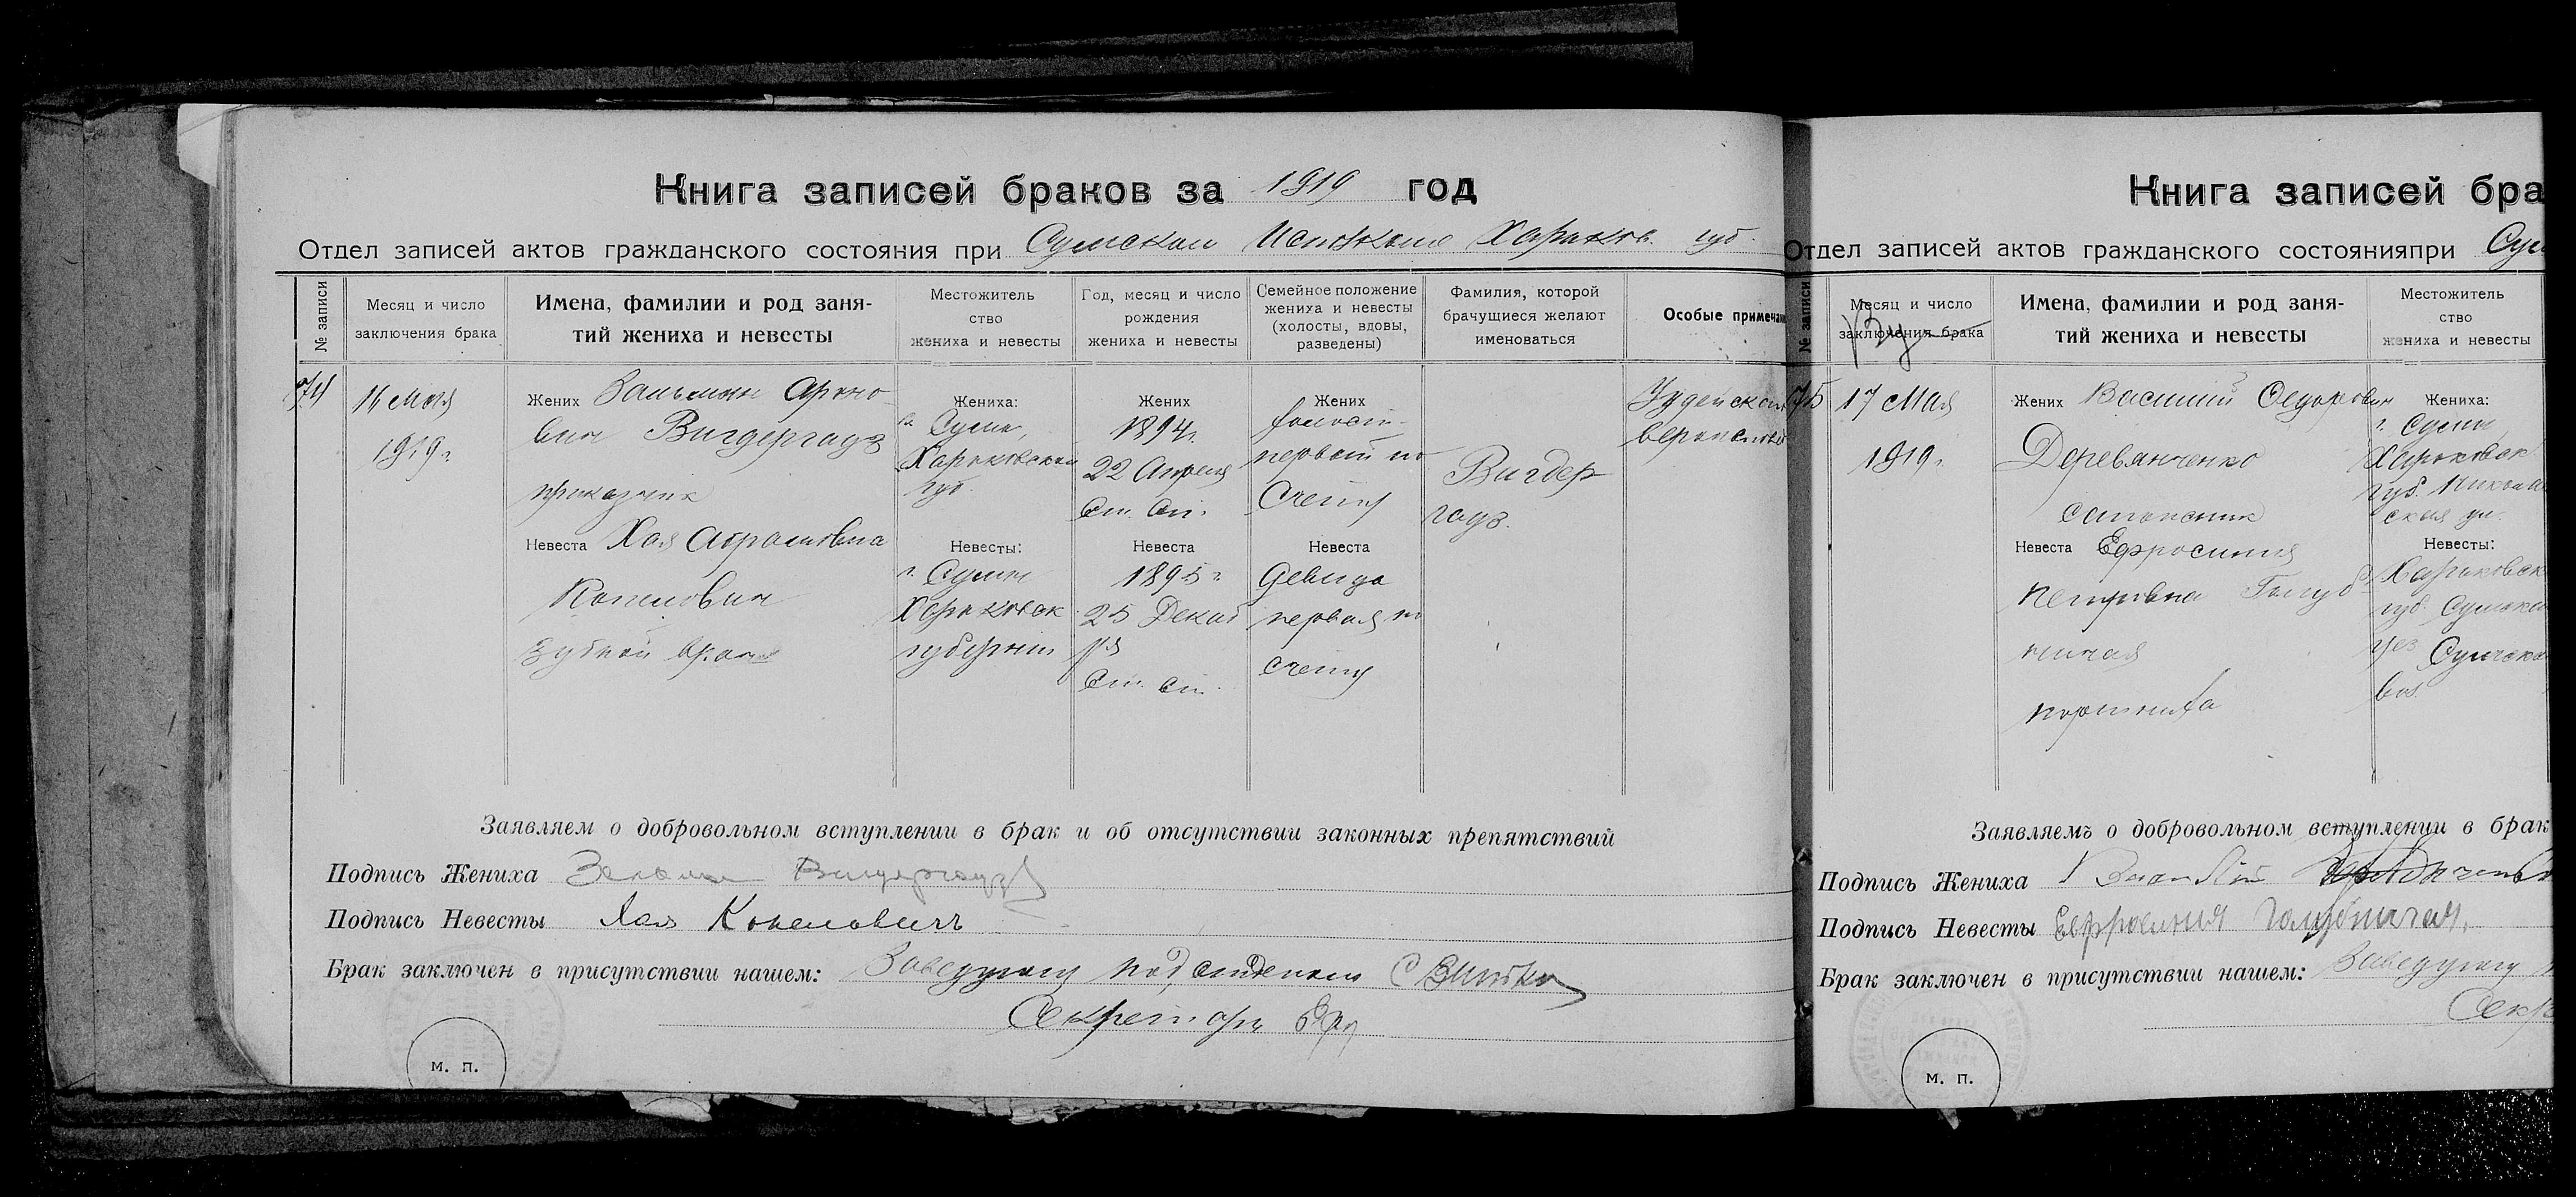 Книга записей браков за 1919 год
Отдел записей актов гражданского состояния при Сумском Исполкоме Харьков. губ.
№ записи
Месяц и число
заключения брака
Имена, фамилии и род заня-
тий жениха и невесты
Местожитель
ство
жениха и невесты
Год, месяц и число
рождения
жениха и невесты
Семейное положение
жениха и невесты
(холосты, вдовы,
разведены)
Фамилия, которой
брачущиеся желают
именоваться
Особые примечан
74
16 Мая
1919 г.
Жених Зальман Ароно
вич Вигдергауз
приказчик
Невеста Хая Абрамовна
Копелович
Зубной врач
Жениха:
г. Сумы,
Харьковской
губ.
Невесты:
г. Сумы
Харьковск
губернии
Жених
1894 г.
22 Апреля
Ст. Ст.
Невеста
1895 г.
25 Декаб
ря
Ст. Ст.
Жених
холост
первый по
счету
Невеста
девица
первая по
счету
Вигдер
гауз.
Иудейскаго
вероиспов
Заявляем о добровольном вступлении в брак и об отсутствии законных препятствий
Подпись Жениха Зельман Вигдергауз
Подпись Невесты Хая Копеловичъ
Брак заключен в присутствии нашем: Заведующий подотделом
Секретарь
м. п.
Книга записей бра
Отдел записей актов гражданского состоянияпри Сум
№ записи
Месяц и число
заключения брака
Имена, фамилии и род заня-
тий жениха и невесты
Местожитель
ство
жениха и невесты
75
17 Мая
1919 г.
Жених Василий Федорович
Деревянченко
сапожник
Невеста Ефросиния
Петровна Голуб
ничая
портниха
Жениха:
г. Сумы
Харьковск
губ. Никола
ская ул.
Невесты:
Харьковск
губ. Сумска
уез Сумска
вол.
Заявляемъ о добровольном вступлении в брак
Подпись Жениха
Подпись Невесты Ефросиния Голубничая.
Брак заключен в присутствии нашем: Заведующий
Секре
м. п.